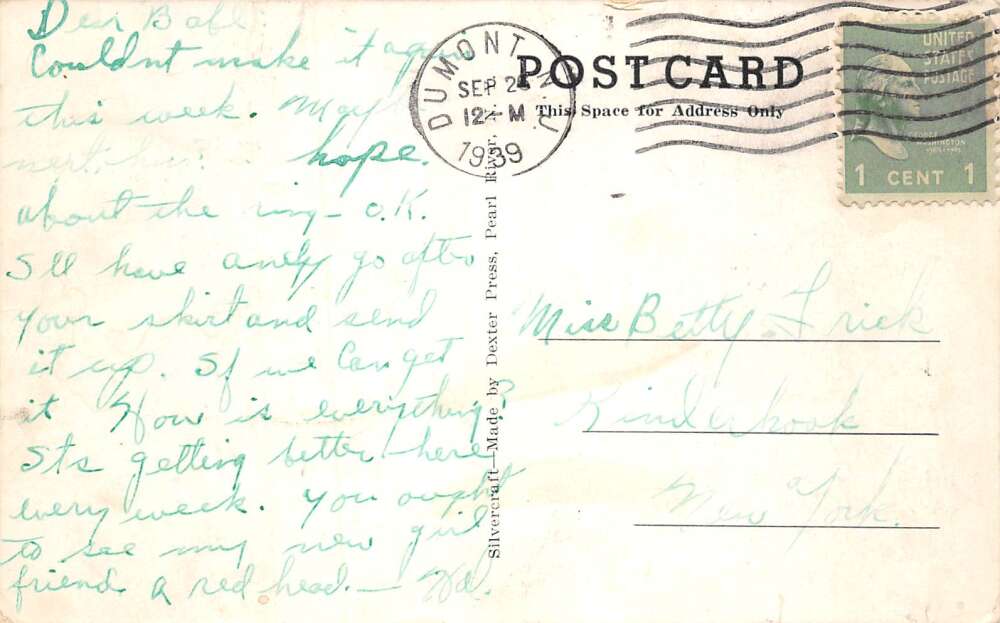 Dear
Couldnt make it again
this week. Mayb
hope.
about the ring - O.K.
I'll have andy go after
your skirt and send
it up. If we Can get
it How is everything?
Its getting better here
every week. You ought
to see my new girl
friend a red head. —
DUMONT N.J.
SEP 2
12 - M
1939
POST CARD
This Space for Address Only
UNITED
STATES
POSTAGE
GEORGE
WASHINGTON
1 CENT 1
Silvercraft—Made by Dexter Press, Pearl River, N.
Miss Betty Frick
Kinderhook
New York.